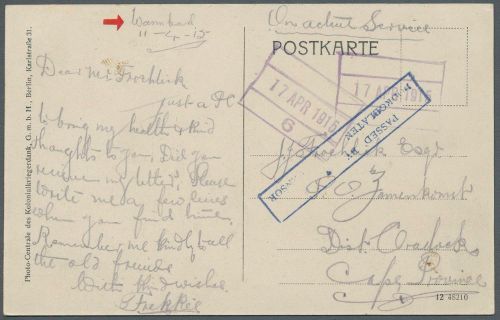 Warmbad
11-4-15
On active Service
POSTKARTE
Dear Mr Froehlich
just a PC
to bring my health & kind
thoughts to you. Did you
receive my letter. Please
write me a few lines
when you find time.
Remember me kindly to all
the old friends
With kind wishes
17 APR 1915
6
17 APR 1915
PASSED BY
CENSOR
Froehlich Esqr
P.O. Jamenkomst
Dist Cradock
Cape Province
Photo-Centrale des Kolonialkriegerdank, G. m. b. H., Berlin, Karlstraße 31.
12 48210